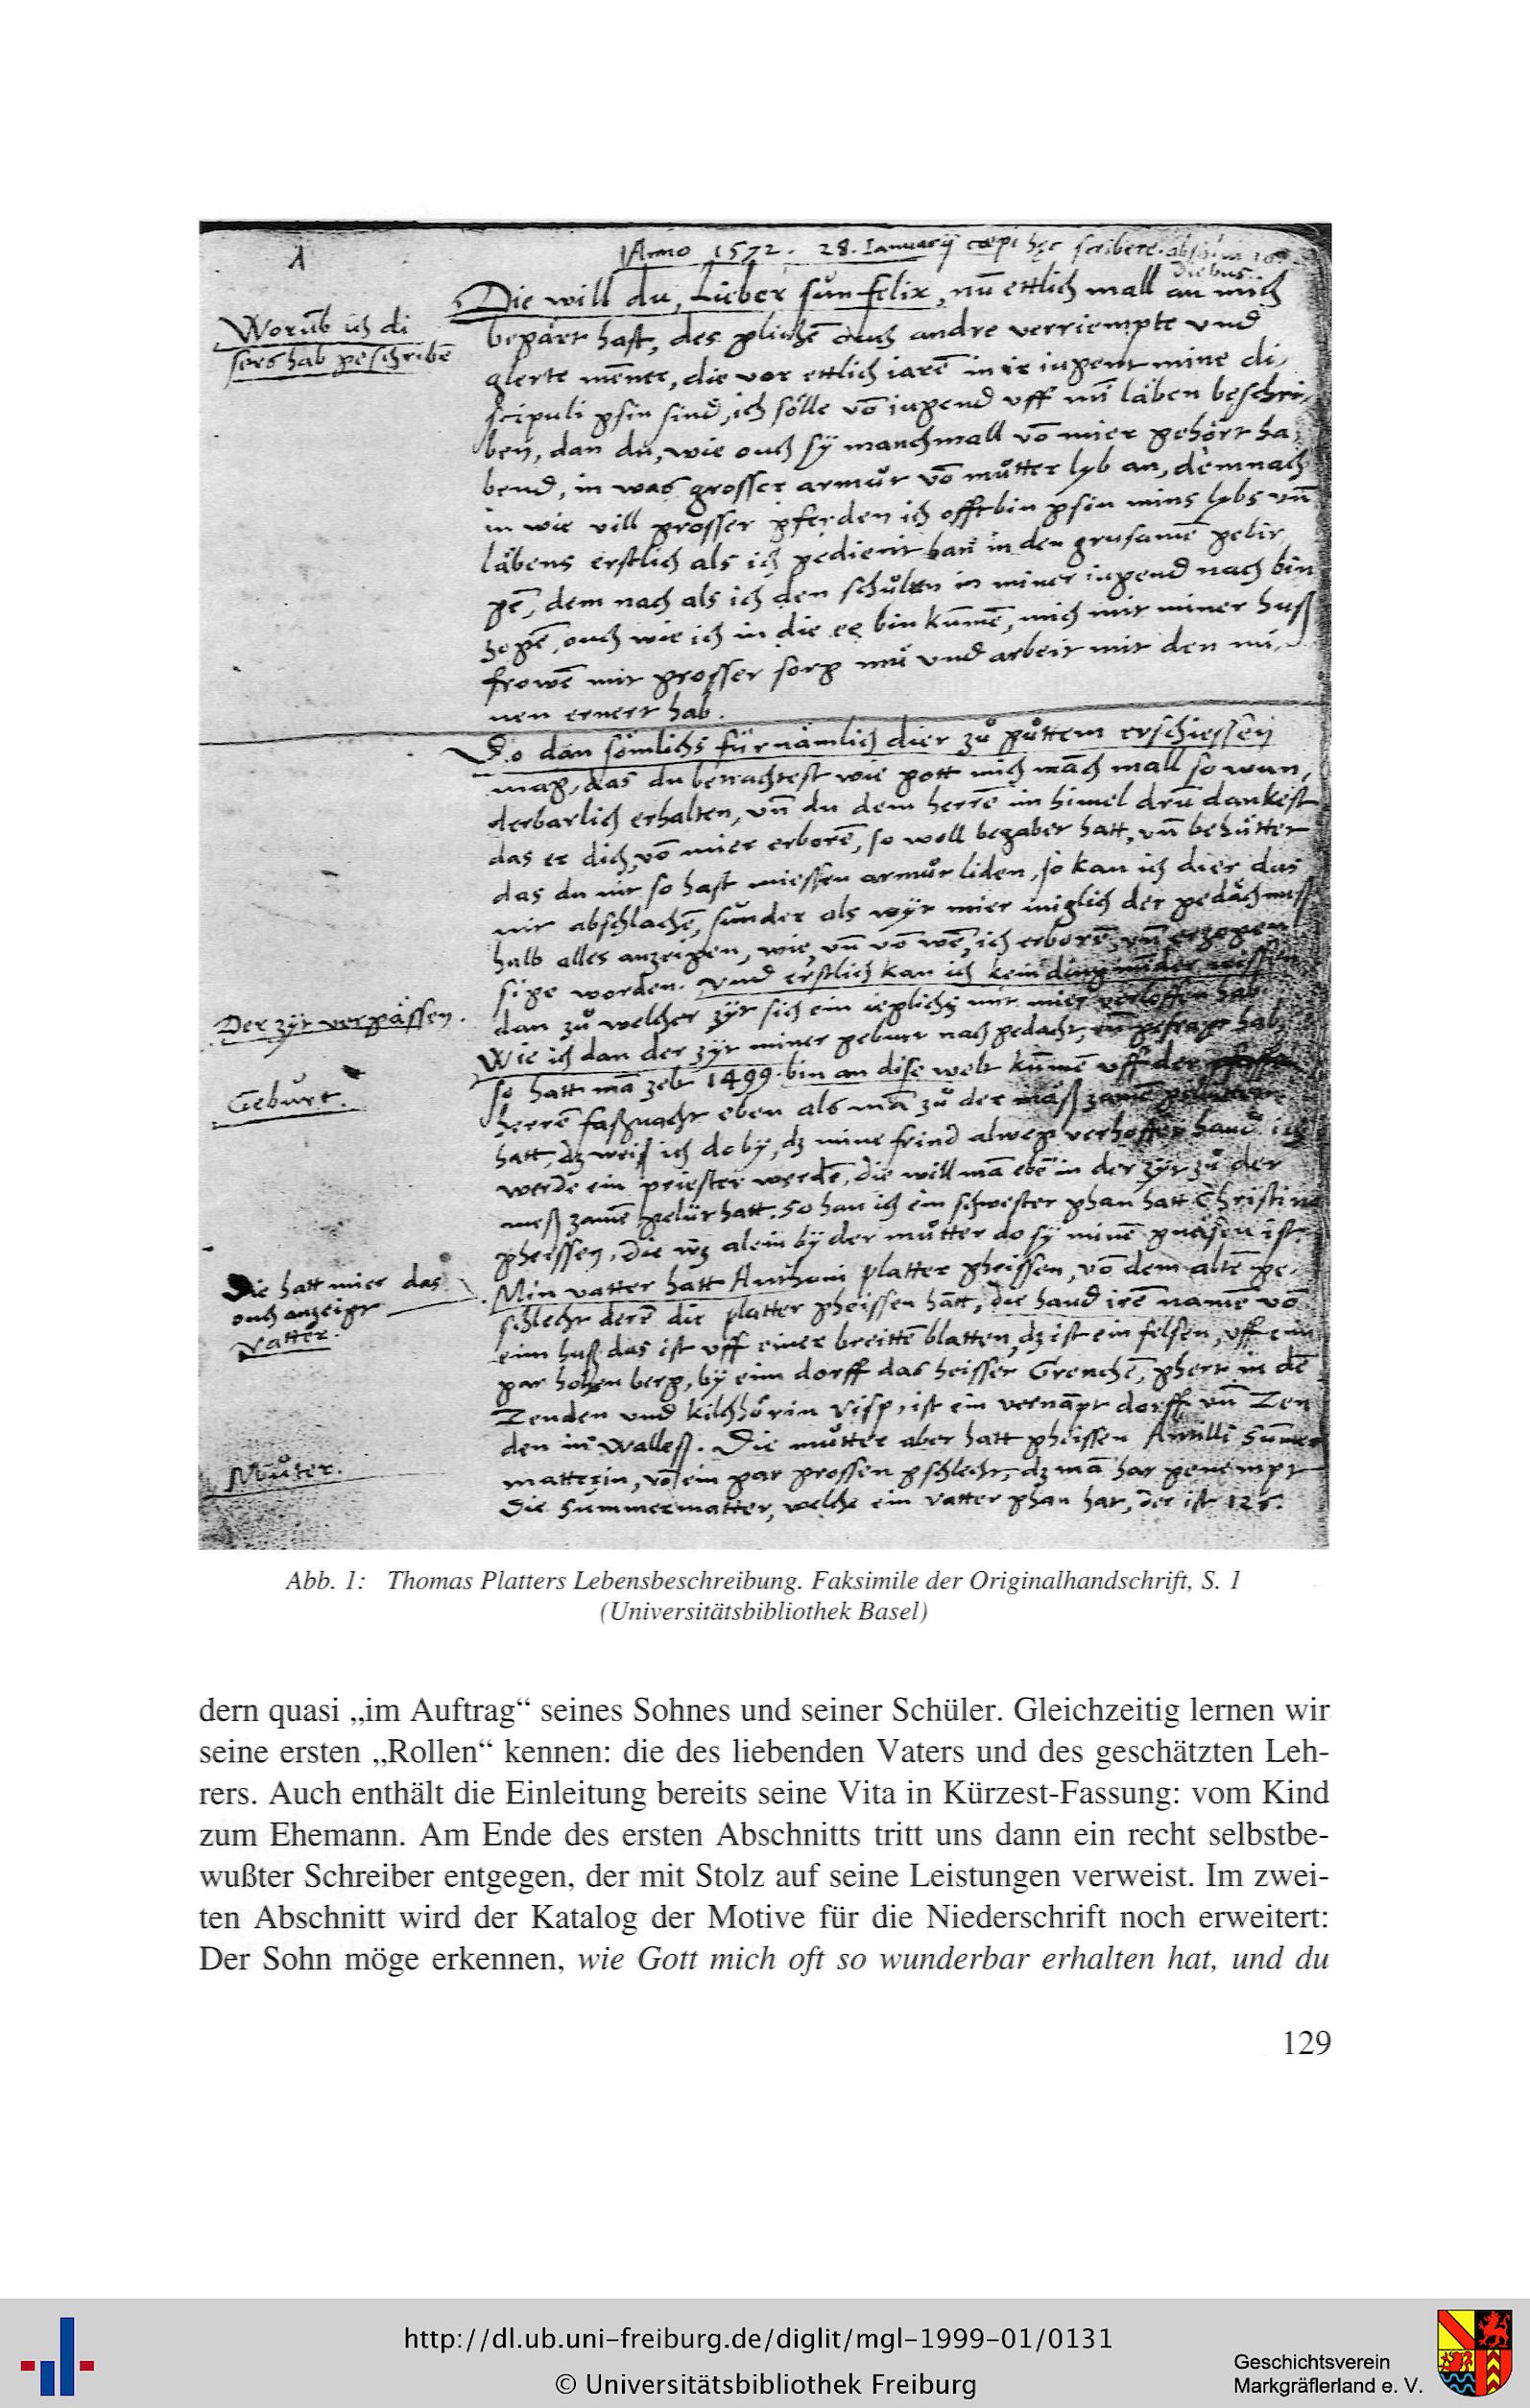 1
Anno 1572. 28. Ianuarij cœpi hęc scribere. absolui 16.
diebus.
Die will du, Lieber sun Felix, nū ettlich mall an mich
Worūb ich di
begärt hast, des glichē ouch andre verriempte vnd
sers hab geschribē
glerte mēner, die vor ettlich iarē in ir iugent mine di,
scipuli gsin sind, ich sölle vō iugend vff mī läben beschri,
ben, dan du, wie ouch sÿ manchmall vō mier gehört ha,
bend, in was grosser armůt vō můtter lyb an, demnach
in wie vill grosser gferden ich offt bin gsin mins lybs vn̄
läbens erstlich als ich gedient han in den grusamē gebir,
gē, dem nach als ich den schůllen in miner iugend nach bin
zogē, ouch wie ich in die ee bin kum̄ē, mich mit miner huß
frowē mit grosser sorg mü vnd arbeit mit den mi,
nen ernert hab.
So dan sömlichs fürnämlich dier zů gůttem erschiessen
mag, das du betrachtest wie gott mich māch mall so wun,
derbarlich erhalten, vn̄ du dem herrē im himel drū dankest
das er dich, vō mier erborē, so woll begabet hatt, vn̄ behüttet
das du nit so hast miessen armůt liden, so kan ich dier das
nit abschlachē, sunder als vyl mier miglich der gedächtnuß
halb alles anzeigen, wie, vn̄ vō wē, ich erborē, vn̄ erzogen
sige worden. Vnd erstlich kan ich kein ding minder wissen
Der zÿt vergässen.
dan zů welcher zÿt sich ein ieglichs mit mier verloffen hab.
Wie ich dan der zÿt miner geburt nach gedacht, vn̄ gefragt hab,
so hatt mā zelt 1499. bin an dise welt kum̄ē vff der
Geburt.
herrē faßnacht eben als mā zů der mäß zamē gelüttet
hatt, dz weiß ich do by, dz mine frind alweg verhoffet hand ich
werde ein priester werdē, die will mā ebē in der zÿt zů der
meß zamē gelüt hatt. So han ich ein schwester ghan hatt Christina
gheissen, die wz alein by der můtter do sÿ minē gnäsen ist
Die hatt mier das
ouch anzeigt
Min vatter hatt Anthoni Platter gheissen, vō dem altē ge,
schlecht derē die platter gheissen hātt, die hand irē namē vō
Vatter.
eim huß das ist vff einer breittē blatten, dz ist ein felsen, vff eim
gar hohen berg, by eim dorff das heisset Grenchē, ghert in dē
Zenden vnd kilchhörin Visp, ist ein vernāpt dorff vn̄ Zen
den in Walleß. Die můtter aber hatt gheissen Amilli Sum̄er
Můter.
matterin, vō ein gar grossen gschlecht, dz mā hat genempt
die Summermatter, welche ein vatter ghan hat, der ist 126.
Abb. 1: Thomas Platters Lebensbeschreibung. Faksimile der Originalhandschrift, S. 1
(Universitätsbibliothek Basel)
dern quasi „im Auftrag“ seines Sohnes und seiner Schüler. Gleichzeitig lernen wir
seine ersten „Rollen“ kennen: die des liebenden Vaters und des geschätzten Leh-
rers. Auch enthält die Einleitung bereits seine Vita in Kürzest-Fassung: vom Kind
zum Ehemann. Am Ende des ersten Abschnitts tritt uns dann ein recht selbstbe-
wußter Schreiber entgegen, der mit Stolz auf seine Leistungen verweist. Im zwei-
ten Abschnitt wird der Katalog der Motive für die Niederschrift noch erweitert:
Der Sohn möge erkennen, wie Gott mich oft so wunderbar erhalten hat, und du
129
http://dl.ub.uni-freiburg.de/diglit/mgl-1999-01/0131
© Universitätsbibliothek Freiburg
Geschichtsverein
Markgräflerland e. V.